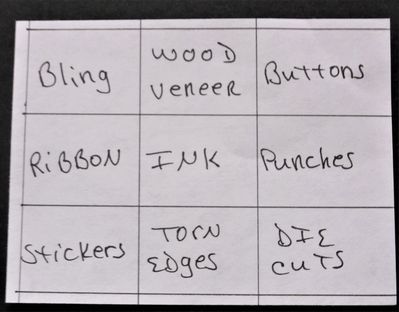 Bling
WOOD
Veneer
Buttons
RiBBON
INK
Punches
Stickers
TORN
Edges
DIE
CUTS